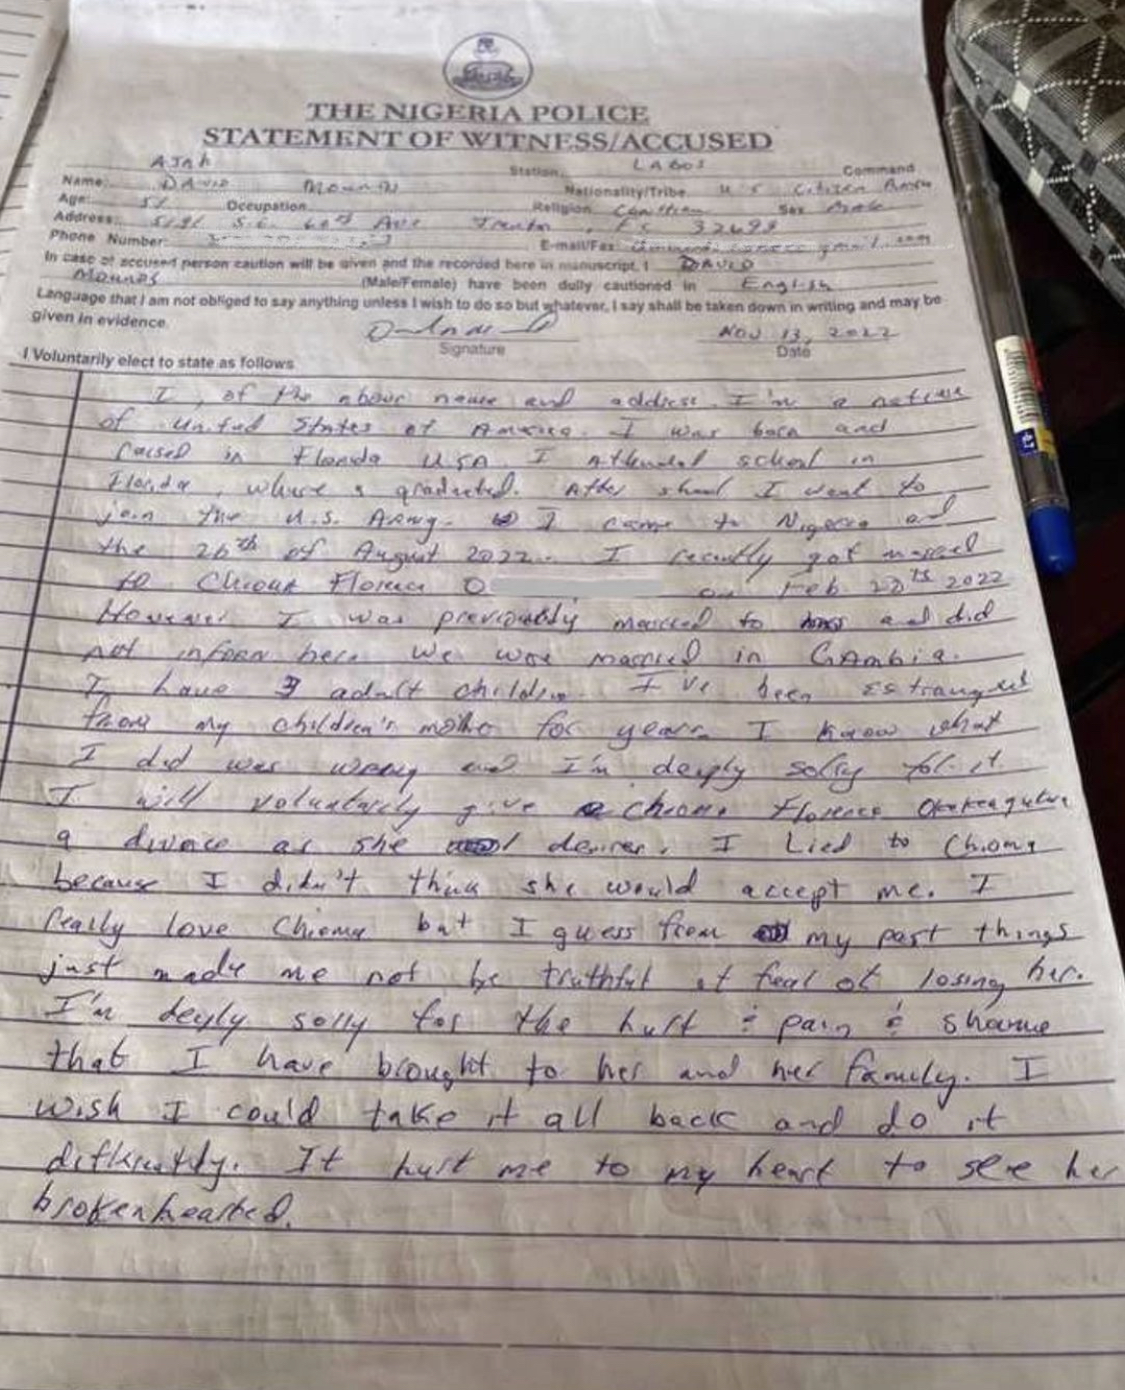 THE NIGERIA POLICE
STATEMENT OF WITNESS/ACCUSED
AJAH Station LAGOS Command
Name: DAVID Nationality/Tribe U S Citizen
Age: 51 Occupation Religion Sex Male
Address: S.E. 60th Ave Trenton, FL
Phone Number: E-mail/Fax: gmail.com
In case of accused person caution will be given and the recorded here in manuscript, I DAVID
(Male/Female) have been dully cautioned in English
Language that I am not obliged to say anything unless I wish to do so but whatever, I say shall be taken down in writing and may be
given in evidence
NOV 13, 2022
Signature Date
I Voluntarily elect to state as follows
I, of the above name and address. I'm a
of United States of America. I was born and
raised in Florida USA. I Attended school in
Florida, where I graduated. After I went to
join the U.S. Army. I came to Nigeria
the 26th of August 2022. I recently got married
to Florence O on Feb 2022
However I was previously married to and did
not inform her. We were married in GAmbia.
I have 3 adult children. I've been estranged
from my children's mother for years. I know what
I did was wrong and I'm deeply solly for it
I will voluntarily give Chioma Florence
a divorce as she desires. I Lied to Chioma
because I didn't think she would accept me. I
really love Chioma but I guess from my past things
just made me not be truthful of feal of losing her.
I'm deeply solly for the hult & pain & shame
that I have brought to her and her family. I
wish I could take it all back and do it
differently. It hult me to my heart to see her
brokenhearted.